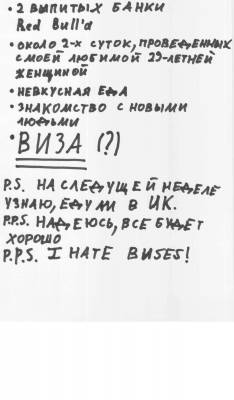 • 2 ВЫПИТЫХ БАНКИ
Red Bull'a
• ОКОЛО 2-Х СУТОК, ПРОВЕДЕННЫХ
С МОЕЙ ЛЮБИМОЙ 29-ЛЕТНЕЙ
ЖЕНЩИНОЙ
• НЕВКУСНАЯ ЕДА
• ЗНАКОМСТВО С НОВЫМИ
ЛЮДЬМИ
• ВИЗА (?)
P.S. НА СЛЕДУЩЕЙ НЕДЕЛЕ
УЗНАЮ, ЕДУ ЛИ В ИК.
P.P.S. НАДЕЮСЬ, ВСЕ БУДЕТ
ХОРОШО
P.P.S. I HATE BUSES!